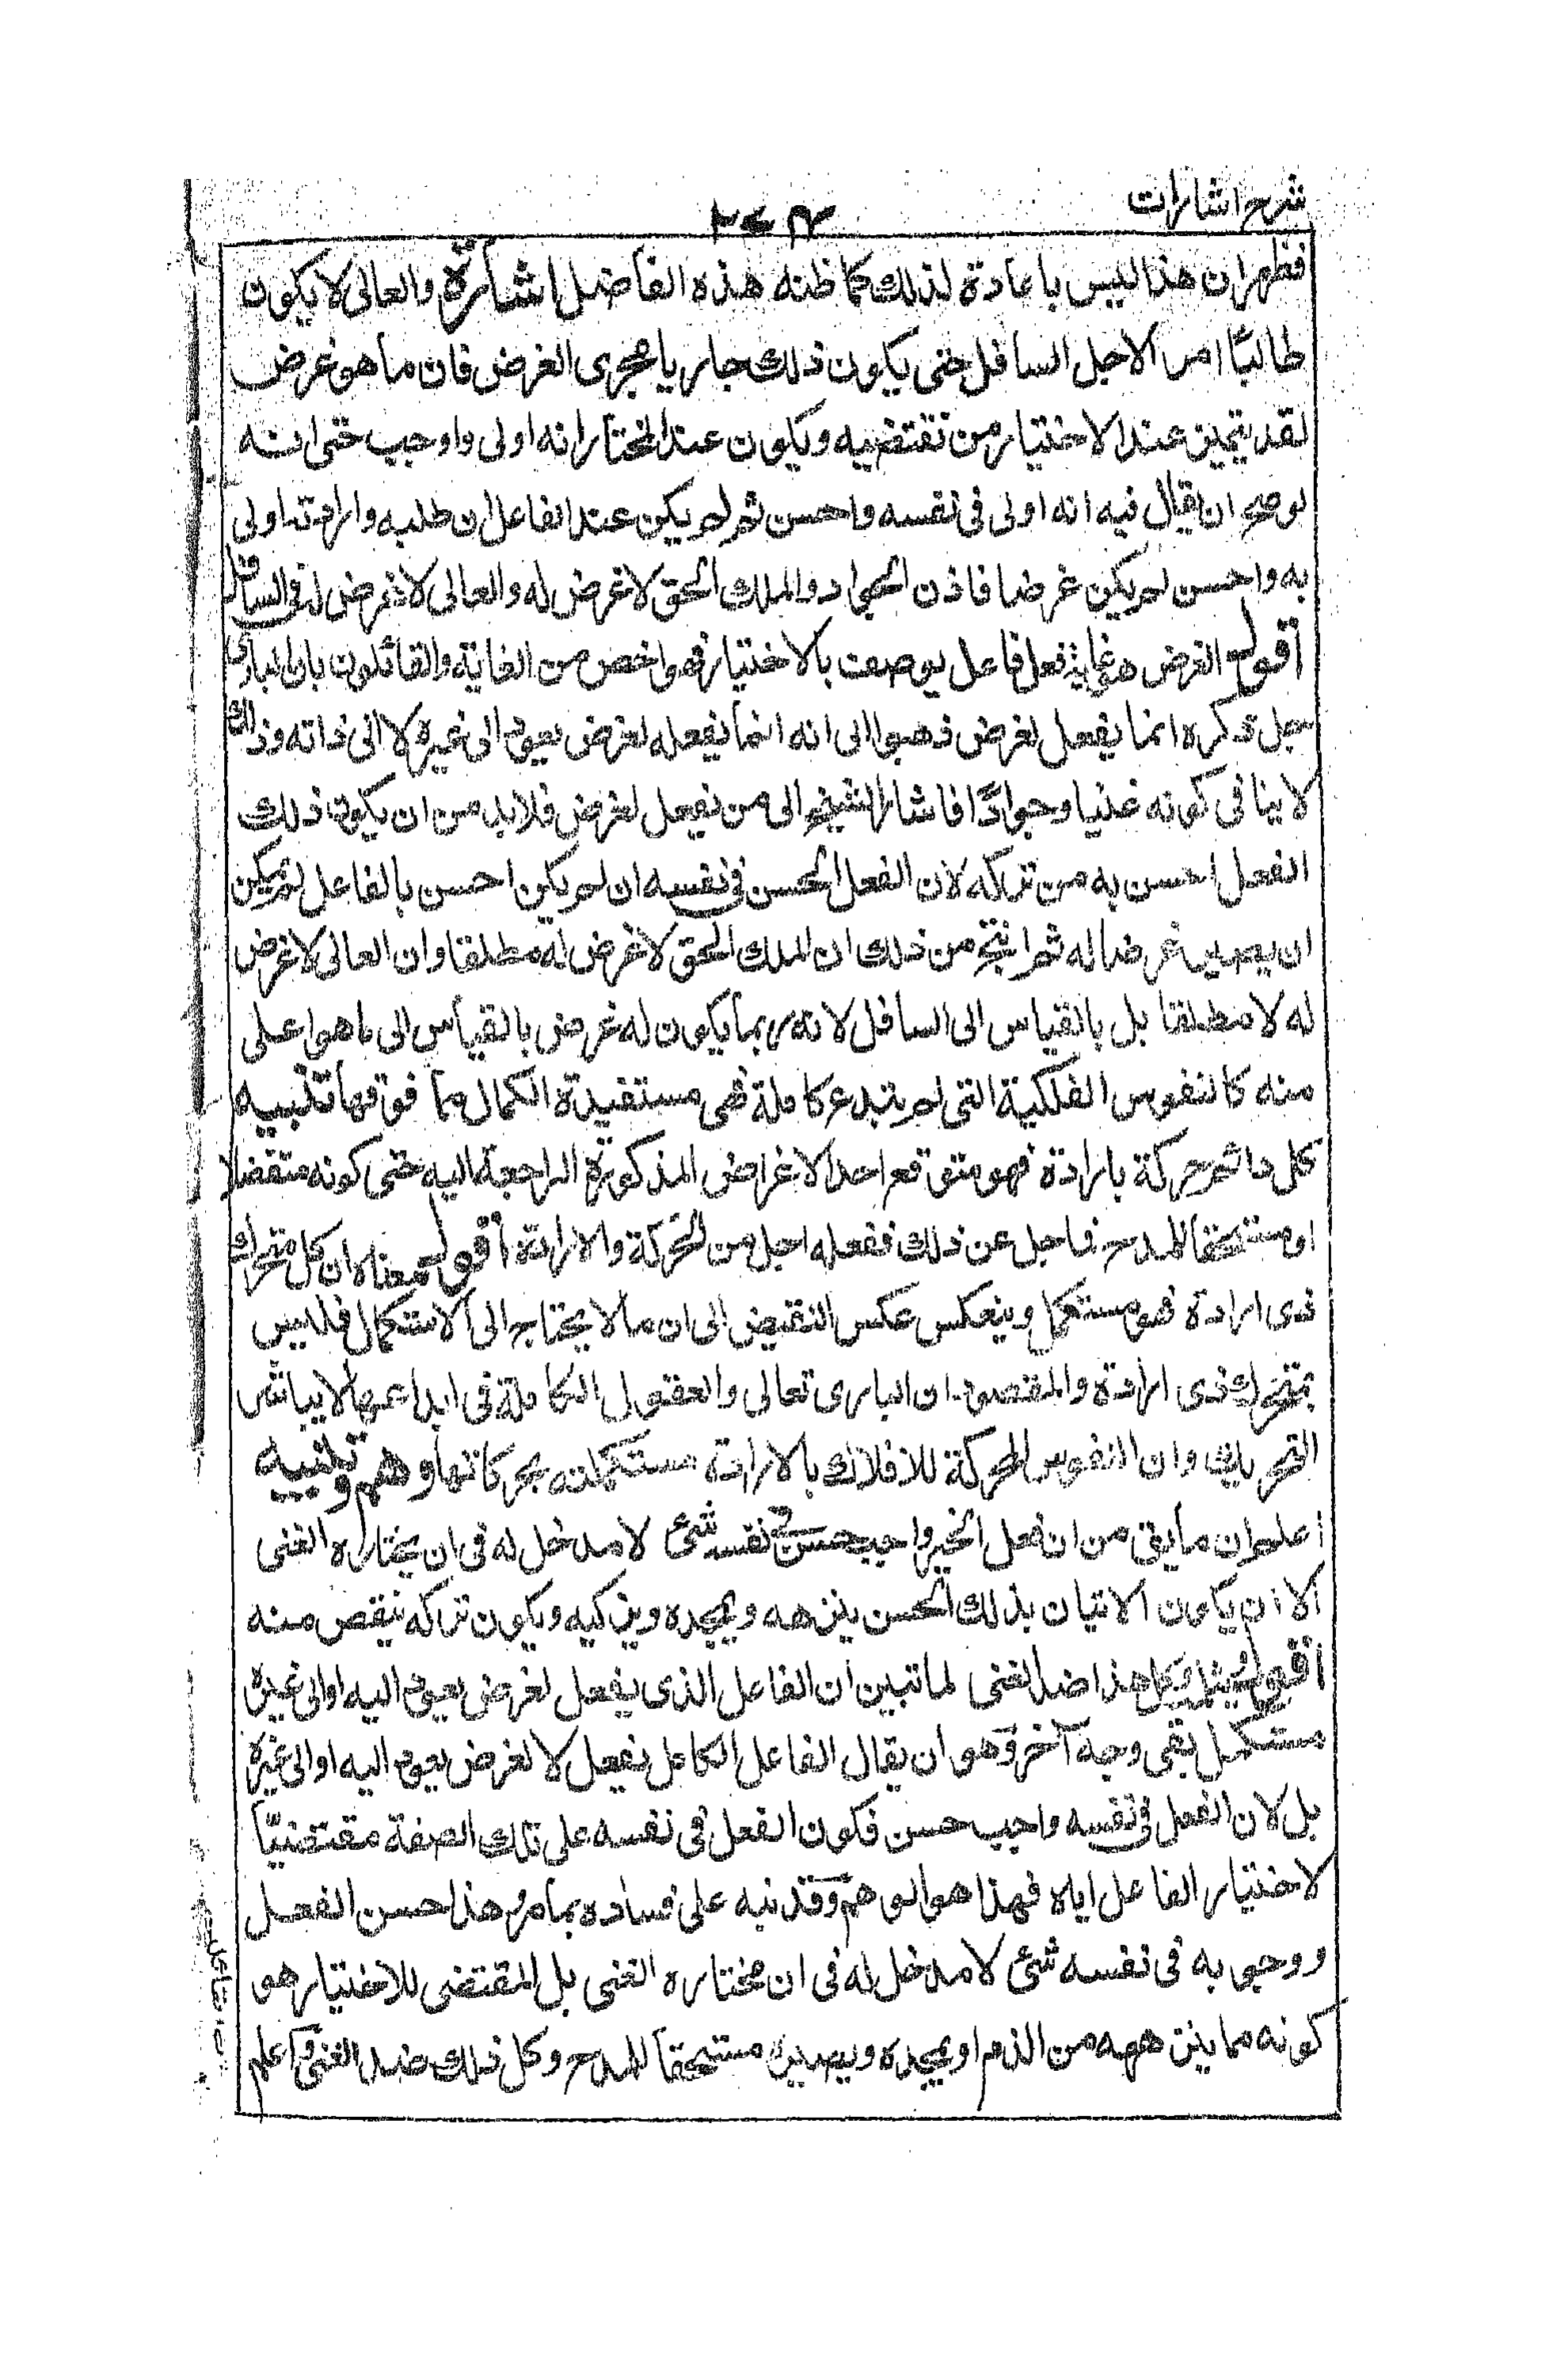 شرح اشارات
فظهر ان هذا ليس باعادة لذلك كما ظنه هذه الفاضل اشارة والعالى لا يكون
طالبًا امر الاجل السافل حتى يكون ذلك جاريا مجرى الغرض فان ما هو غرض
لقد يتميز عند الاختيار من نقيضه ويكون عند المختار انه اولى واوجب حتى انه
لو صح ان يقال فيه انه اولى فى نفسه واحسن ثم لم يكن عند الفاعل ان طلبه وارادته اولى
به واحسن لم يكن غرضا فاذن الجواد والملك الحق لا غرض له والعالى لا غرض له فى السافل
اقول الغرض هو غاية فعل فاعل يوصف بالاختيار فهو اخص من الغاية والقائلون بان البارى
جل ذكره انما يفعل لغرض ذهبوا الى انه انما يفعله لغرض يعود الى غيره لا الى ذاته وذلك
لا ينافى كونه غنيا وجوادًا فاشار الشيخ الى من يفعل لغرض فلابد من ان يكون ذلك
الفعل احسن به من تركه لان الفعل الحسن فى نفسه ان لم يكن احسن بالفاعل لم يمكن
ان يصير غرضا له ثم انتج من ذلك ان الملك الحق لا غرض له مطلقا وان العالى لا غرض
له لا مطلقا بل بالقياس الى السافل لانه ربما يكون له غرض بالقياس الى ما هو اعلى
منه كالنفوس الفلكية التى لم تبدع كاملة فهى مستفيدة الكمال مما فوقها تذنيب
كل دائم حركة بارادة فهو متوقع احد الاغراض المذكورة الراجعة اليه حتى كونه متفضلا
او مستحقا للمدح فما جل عن ذلك ففعله اجل من الحركة والارادة اقول معناه ان كل متحرك
ذى ارادة فهو مستكمل وينعكس عكس النقيض الى ان ما لا يحتاج الى الاستكمال فليس
بمتحرك ذى ارادة والمقصود ان البارى تعالى والعقول الكاملة فى ابداعها لا يباشر
التحريك وان النفوس المحركة للافلاك بالارادة مستكملة بحركاتها وهم وتنبيه
اعلم ان ما يق من ان فعل الخير واجب حسن فى نفسه شئ لا مدخل له فى ان يختاره الغنى
الا ان يكون الاتيان بذلك الحسن ينزهه ويمجده ويزكيه ويكون تركه ينقص منه
وكل هذا ضد الغنى لما تبين ان الفاعل الذى يفعل لغرض يعود اليه او الى غيره
مستكمل بقى وجه آخر وهو ان يقال الفاعل الكامل يفعل لا لغرض يعود اليه او الى غيره
بل لان الفعل فى نفسه واجب حسن فكون الفعل فى نفسه على تلك الصفة مقتضيًا
لاختيار الفاعل اياه فهذا هو الوهم وقد نبه على فساده بما مر وهذا حسن الفعل
ووجوبه فى نفسه شئ لا مدخل له فى ان مختاره الغنى بل المقتضى للاختيار هو
كونه مما ينزهه من الذم او يمجده ويصيره مستحقا للمدح وكل ذلك ضد الغنى واعلم